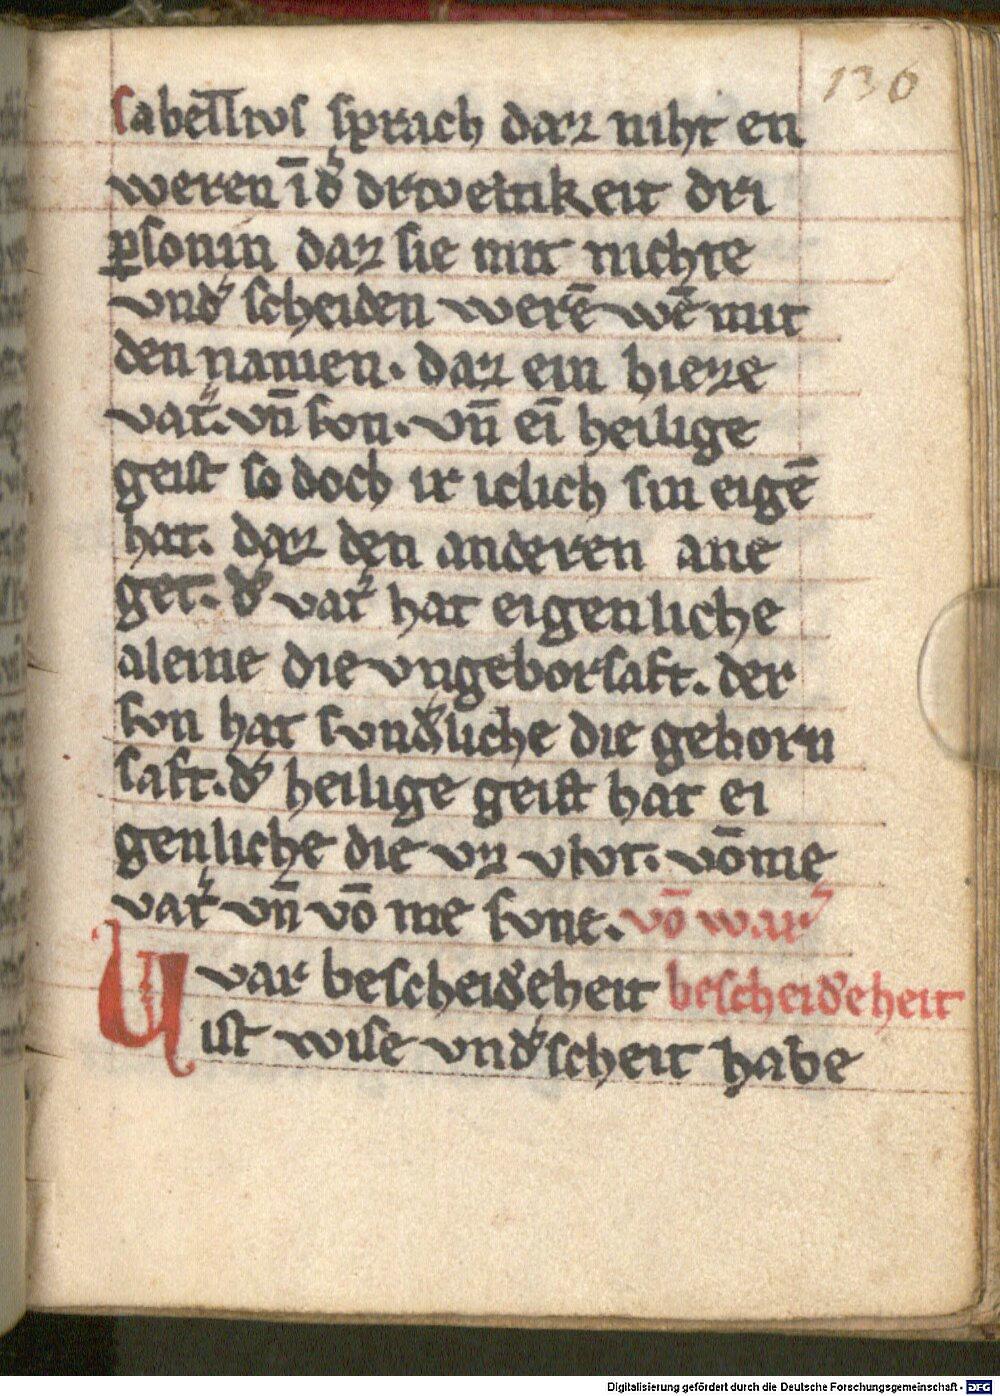 136
sabellius sprach daz niht en
weren ī d͛ driveltikeit dri
p̱sonin daz sie mit nichte
vnd͛ scheiden werē wē mit
den namen. daz ein hieze
vat͛. vn̄ son. vn̄ eī heilige
geist so doch ir iclich sin eigē
hat. daz den anderen ane
get. d͛ vat͛ hat eigenliche
aleine die vngeborsaft. der
son hat sond͛liche die geborn
saft. d͛ heilige geist hat ei
genliche die vz vlut. vōme
vat͛ vn̄ vō me sone. vō war͛
War bescheid͛eheit bescheid͛eheit
ist wise vnd͛scheit habe
Digitalisierung gefördert durch die Deutsche Forschungsgemeinschaft - DFG